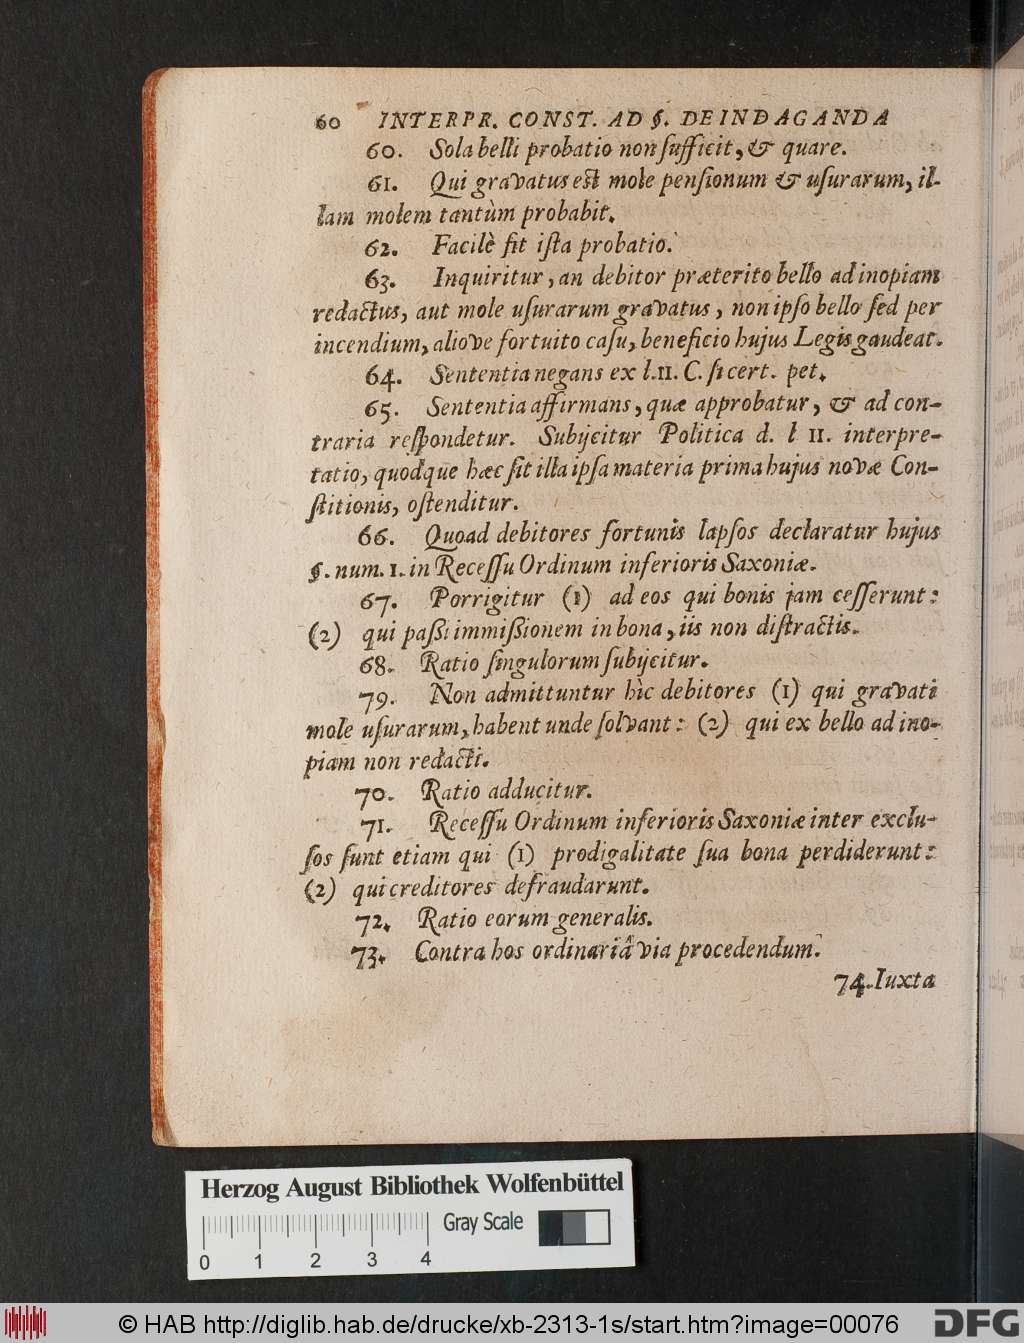 60 INTERPR. CONST. AD §. DE INDAGANDA
60. Sola belli probatio non ſufficit, & quare.
61. Qui gravatus est mole penſionum & uſurarum, il-
lam molem tantùm probabit.
62. Facilè fit iſta probatio.
63. Inquiritur, an debitor præterito bello ad inopiam
redactus, aut mole uſurarum gravatus, non ipſo bello ſed per
incendium, aliove fortuito caſu, beneficio hujus Legis gaudeat.
64. Sententia negans ex l. 11. C. ſi cert. pet.
65. Sententia affirmans, quæ approbatur, & ad con-
traria reſpondetur. Subijcitur Politica d. l 11. interpre-
tatio, quodque hæc ſit illa ipſa materia prima hujus novæ Con-
ſtitionis, oſtenditur.
66. Quoad debitores fortunis lapſos declaratur hujus
§. num. 1. in Receſſu Ordinum inferioris Saxoniæ.
67. Porrigitur (1) ad eos qui bonis jam ceſſerunt:
(2) qui paßi immißionem in bona, iis non diſtractis.
68. Ratio ſingulorum ſubijcitur.
79. Non admittuntur hìc debitores (1) qui gravati
mole uſurarum, habent unde ſolvant: (2) qui ex bello ad ino-
piam non redacti.
70. Ratio adducitur.
71. Receſſu Ordinum inferioris Saxoniæ inter exclu-
ſos ſunt etiam qui (1) prodigalitate ſua bona perdiderunt:
(2) qui creditores defraudarunt.
72. Ratio eorum generalis.
73. Contra hos ordinariâ via procedendum.
74. Iuxta
Herzog August Bibliothek Wolfenbüttel
Gray Scale
0 1 2 3 4
© HAB http://diglib.hab.de/drucke/xb-2313-1s/start.htm?image=00076
DFG